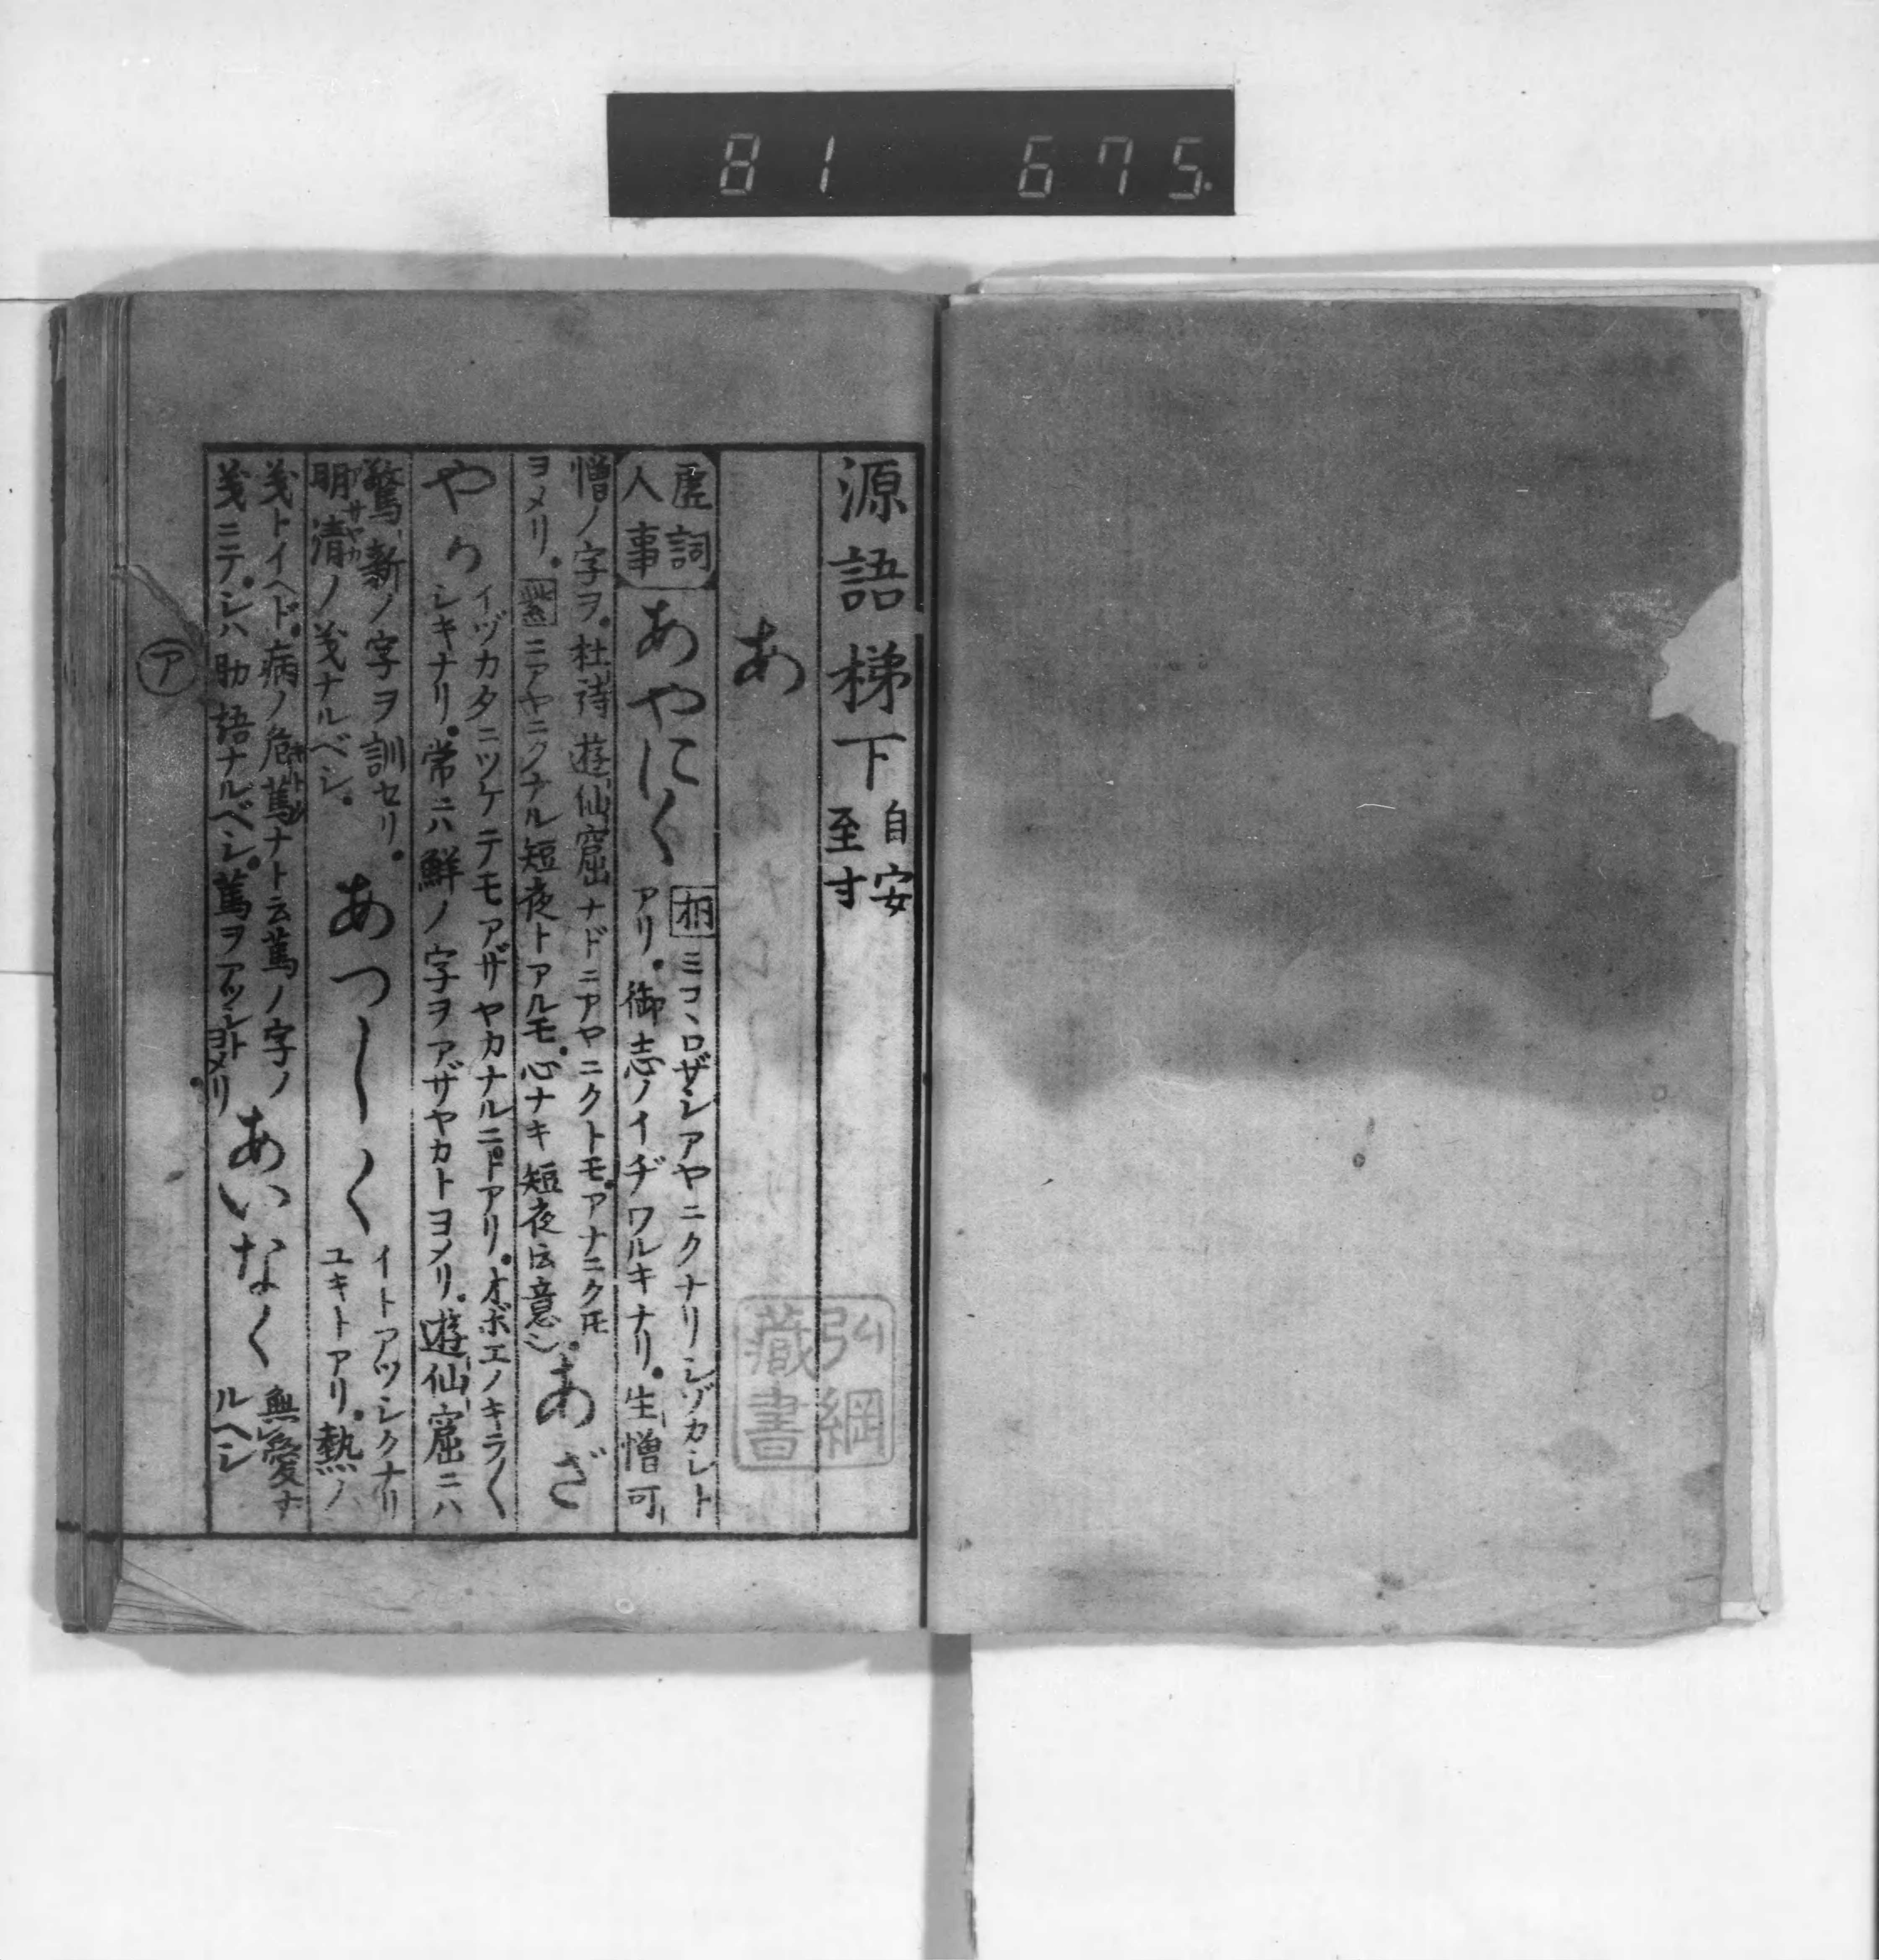 81 675
源語梯下 自安
至寸
あ
虚詞
人事
あやにく
桐ミコヽロザシアヤニクナリシゾカシト
アリ。御志ノイヂワルキナリ。生憎可
憎ノ字ヲ。杜詩遊仙窟ナドニアヤニクトモ。アナニクモ
ヨメリ。紫ニアヤニクナル短夜トアルモ。心ナキ短夜ト云意也。
あざ
やか
イヅカタニツケテモアザヤカナルニドアリ。オボエノキラ〱
シキナリ。常ニハ鮮ノ字ヲアザヤカトヨメリ。遊仙窟ニハ
驚新ノ字ヲ訓セリ。
明清ノ義ナルベシ。
あつしく
イトアツシクナリ
ユキトアリ。熱ノ
義トイヘド。病ノ危篤ナト云篤ノ字ノ
義ミテ。シハ助語ナルベシ。篤ヲアツシトヨメリ。
あいなく
無愛ナ
ルヘシ
ア
弘綱
蔵書